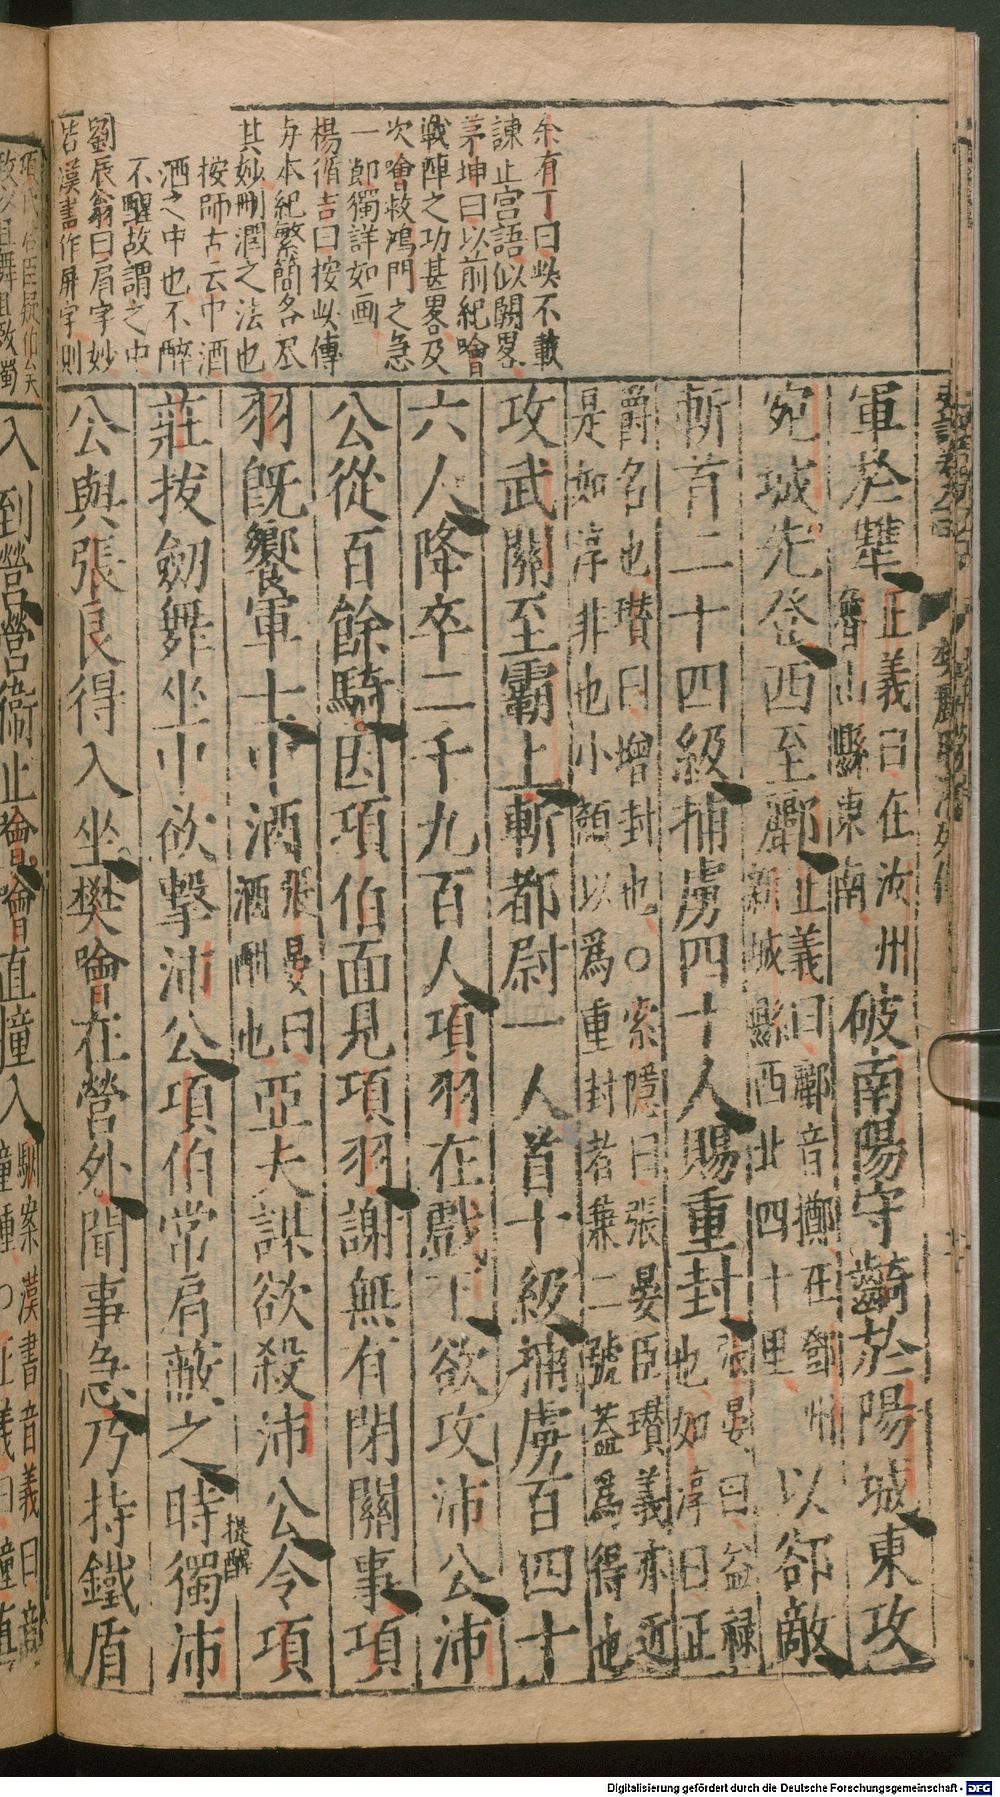 余有丁曰此不載
諫止宮語似闕畧
茅坤曰以前紀噲
戰陣之功甚畧及
次噲救鴻門之急
一節獨詳如画
楊循吉曰按此傳
与本紀繁簡各尽
其妙刪潤之法也
按師古云中酒
酒之中也不醉
不醒故謂之中
劉辰翁曰肩字妙
若漢書作屏字則
軍於犨正義曰在汝州魯山縣東南破南陽守齮於陽城東攻
宛城先登西至酈正義曰酈音擲在鄧州新城縣西北四十里以卻敵
斬首二十四級捕虜四十人賜重封張晏曰益祿也如淳曰正
爵名也瓚曰增封也○索隱曰張晏臣瓚義亦近
是如淳非也小顏以爲重封者兼二號蓋爲得也
攻武關至霸上斬都尉一人首十級捕虜百四十
六人降卒二千九百人項羽在戲下欲攻沛公沛
公從百餘騎因項伯面見項羽謝無有閉關事項
羽旣饗軍士中酒張晏曰酒酣也亞夫謀欲殺沛公令項
提醒
莊拔劔舞坐中欲擊沛公項伯常肩蔽之時獨沛
公與張良得入坐樊噲在營外聞事急乃持鐵盾
入到營營衞止噲噲直撞入
Digitalisierung gefördert durch die Deutsche Forschungsgemeinschaft - DFG